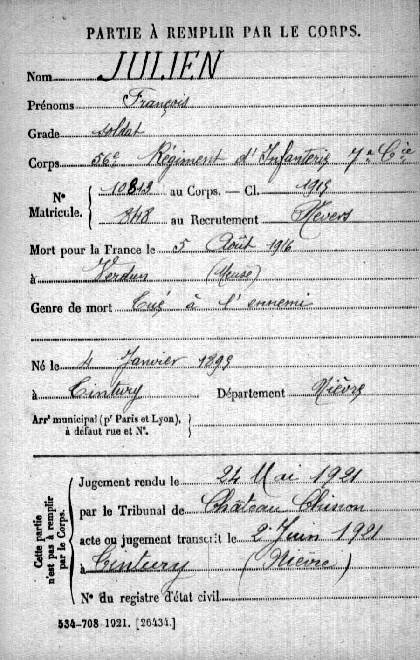 PARTIE À REMPLIR PAR LE CORPS.
Nom JULIEN
Prénoms François
Grade soldat
Corps 56e Régiment d'Infanterie 7e Cie
Nº Matricule. { 10813 au Corps. — Cl. 1919
848 au Recrutement Nevers
Mort pour la France le 5 Août 1916
à Verdun (Meuse)
Genre de mort Tué à l'ennemi
Né le 4 Janvier 1899
à Tintury Département Nièvre
Arrt municipal (pr Paris et Lyon), à défaut rue et Nº. }
Cette partie n'est pas à remplir par le Corps. {
Jugement rendu le 24 Mai 1921
par le Tribunal de Château Chinon
acte ou jugement transcrit le 2 Juin 1921
à Tintury (Nièvre)
Nº du registre d'état civil
534-708 1921. [26434.]